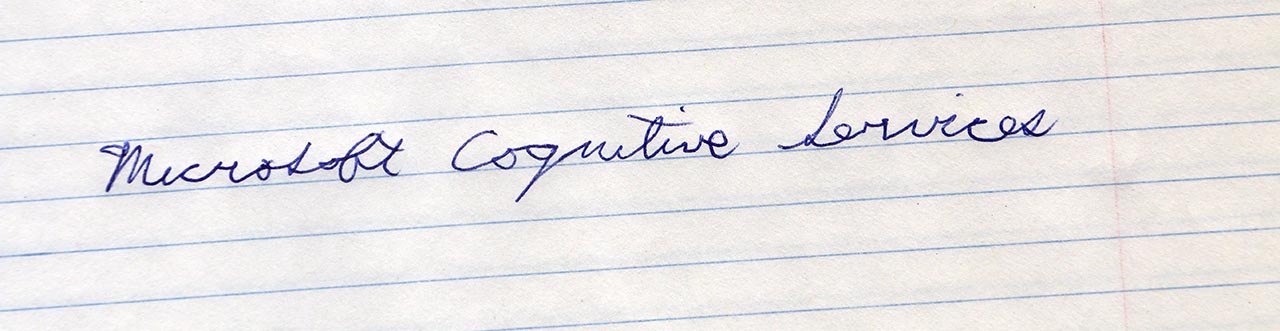 Microsoft Cognitive Services